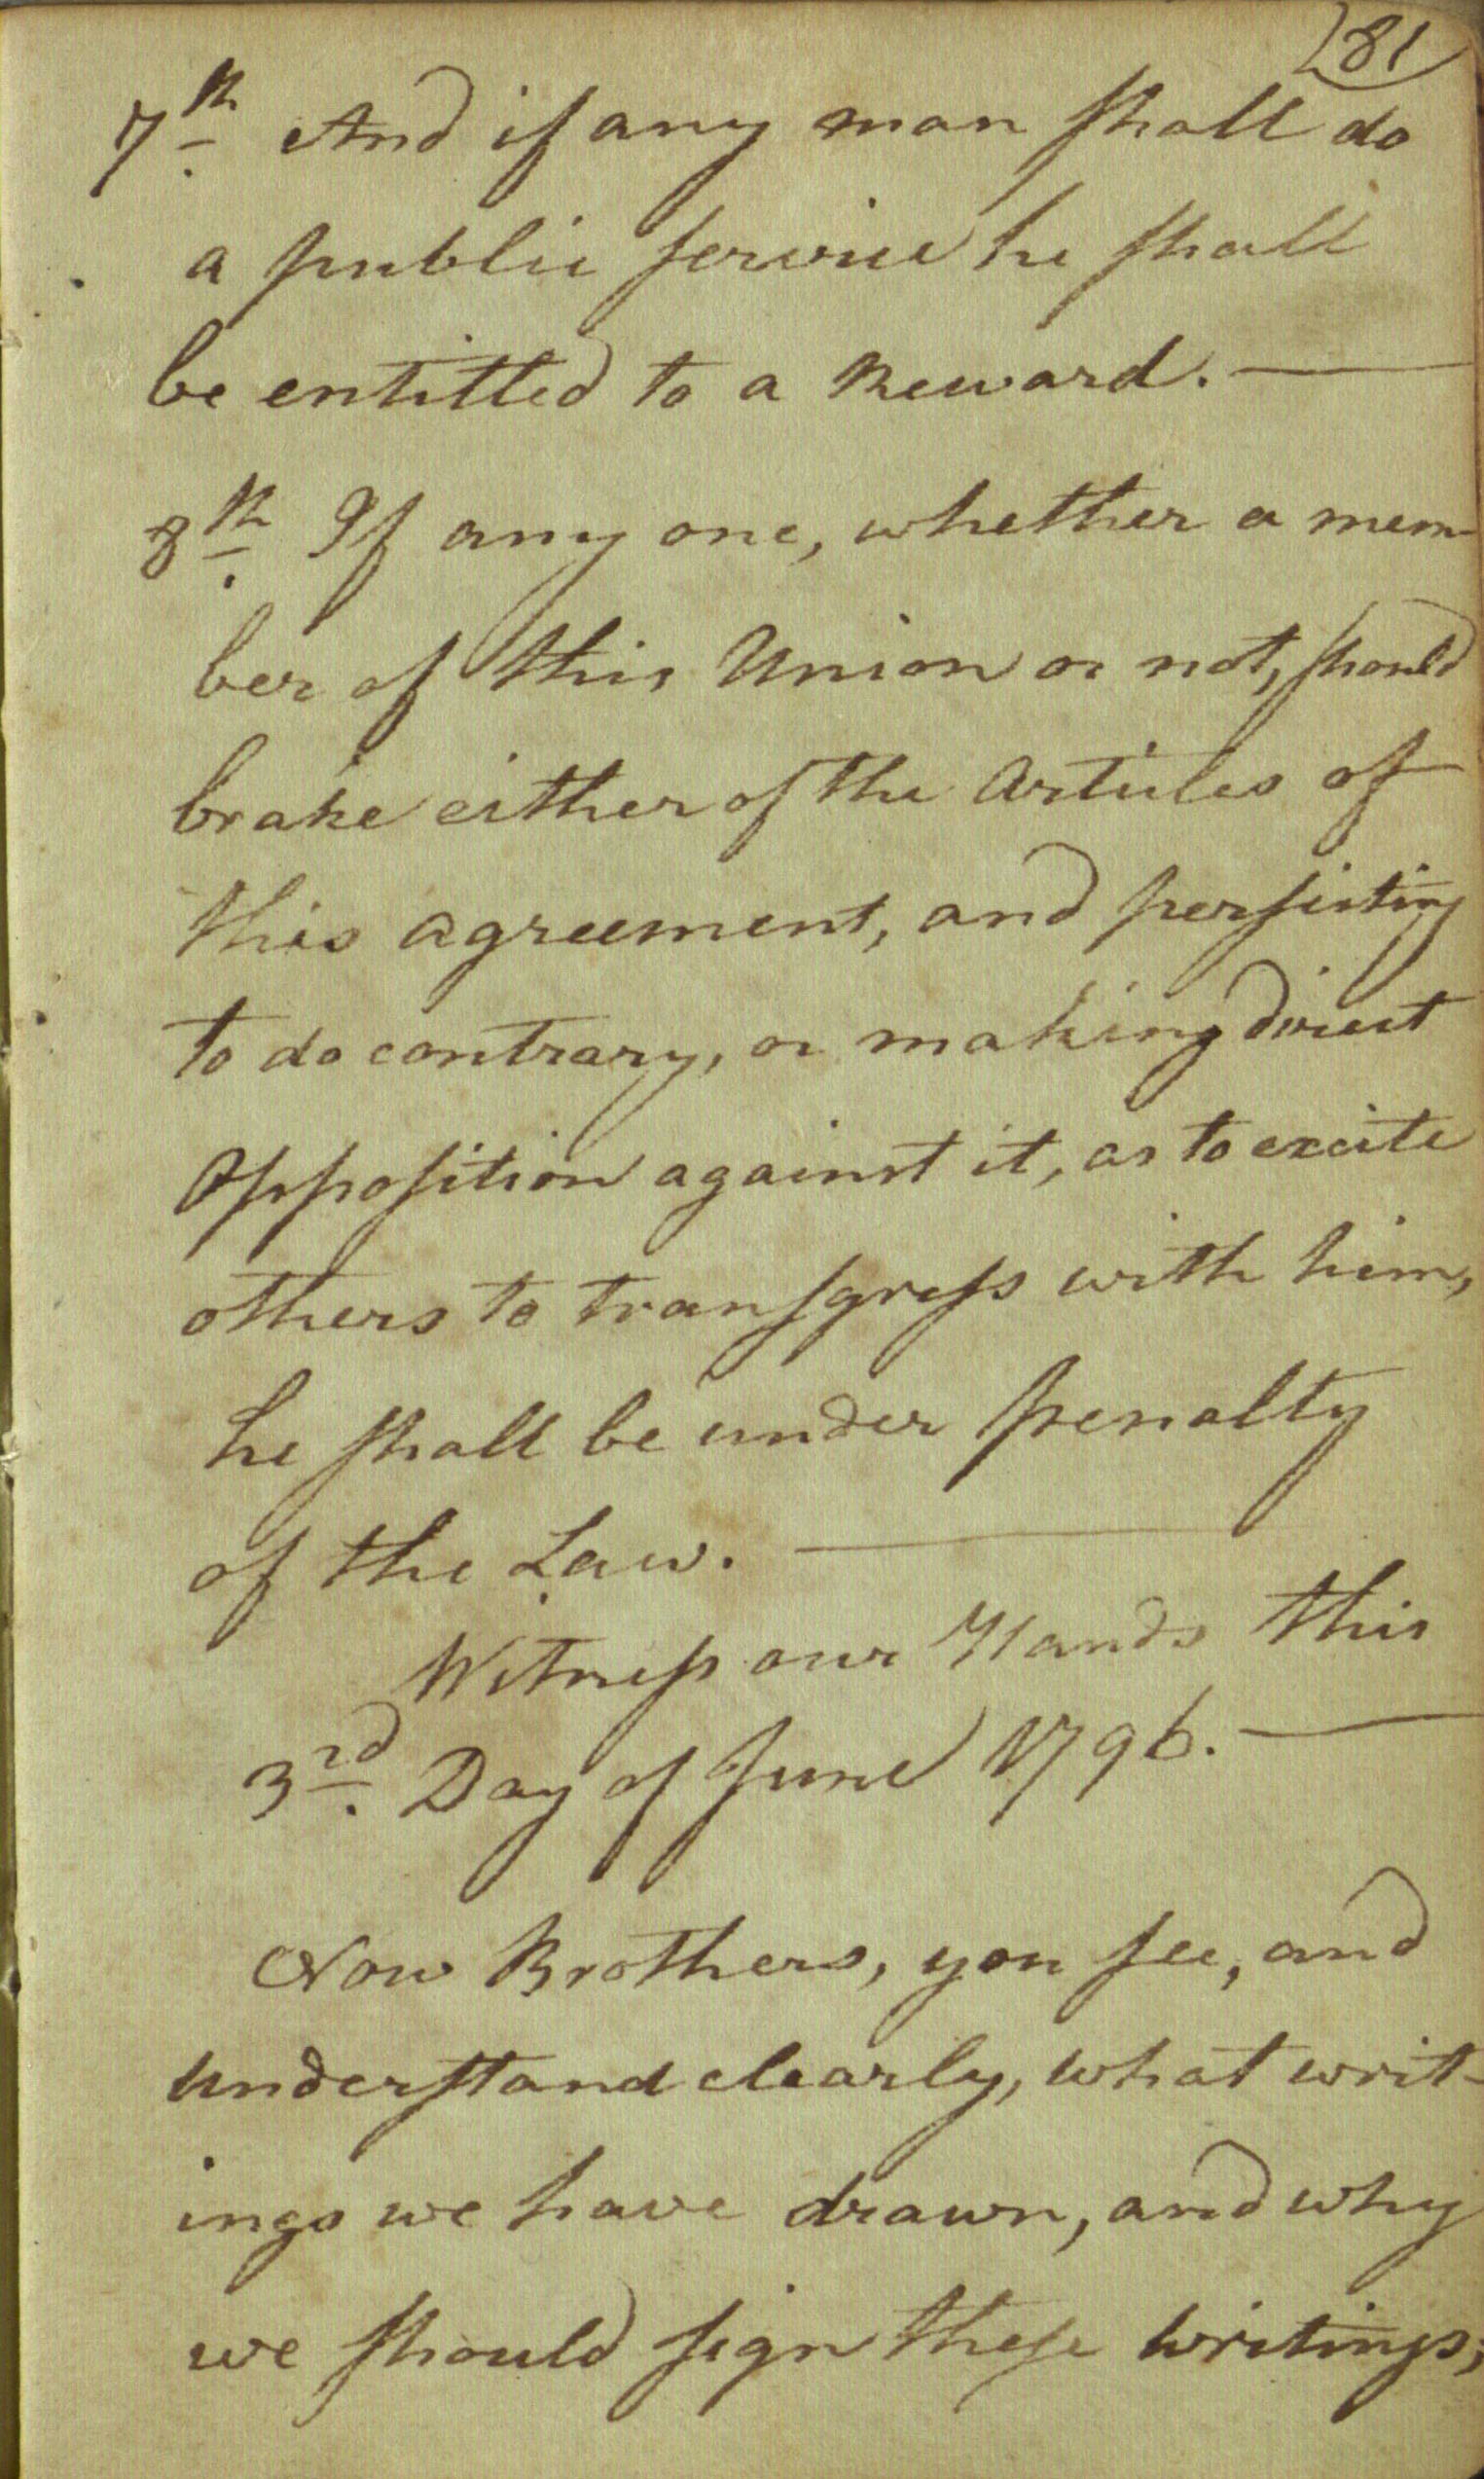 281
7th. And if any man shall do
a public service he shall
be entitled to a Reward. —
8th. If any one, whether a mem-
ber of this Union or not, should
brake either of the Articles of
this agreement, and persisting
to do contrary, or making direct
Opposition against it, as to excite
others to transgress with him,
he shall be under penalty
of the Law. —
Witness our Hands this
3rd. Day of June 1796. —
Now Brothers, you see, and
understand clearly, what writ-
ings we have drawn, and why
we should sign these writings;